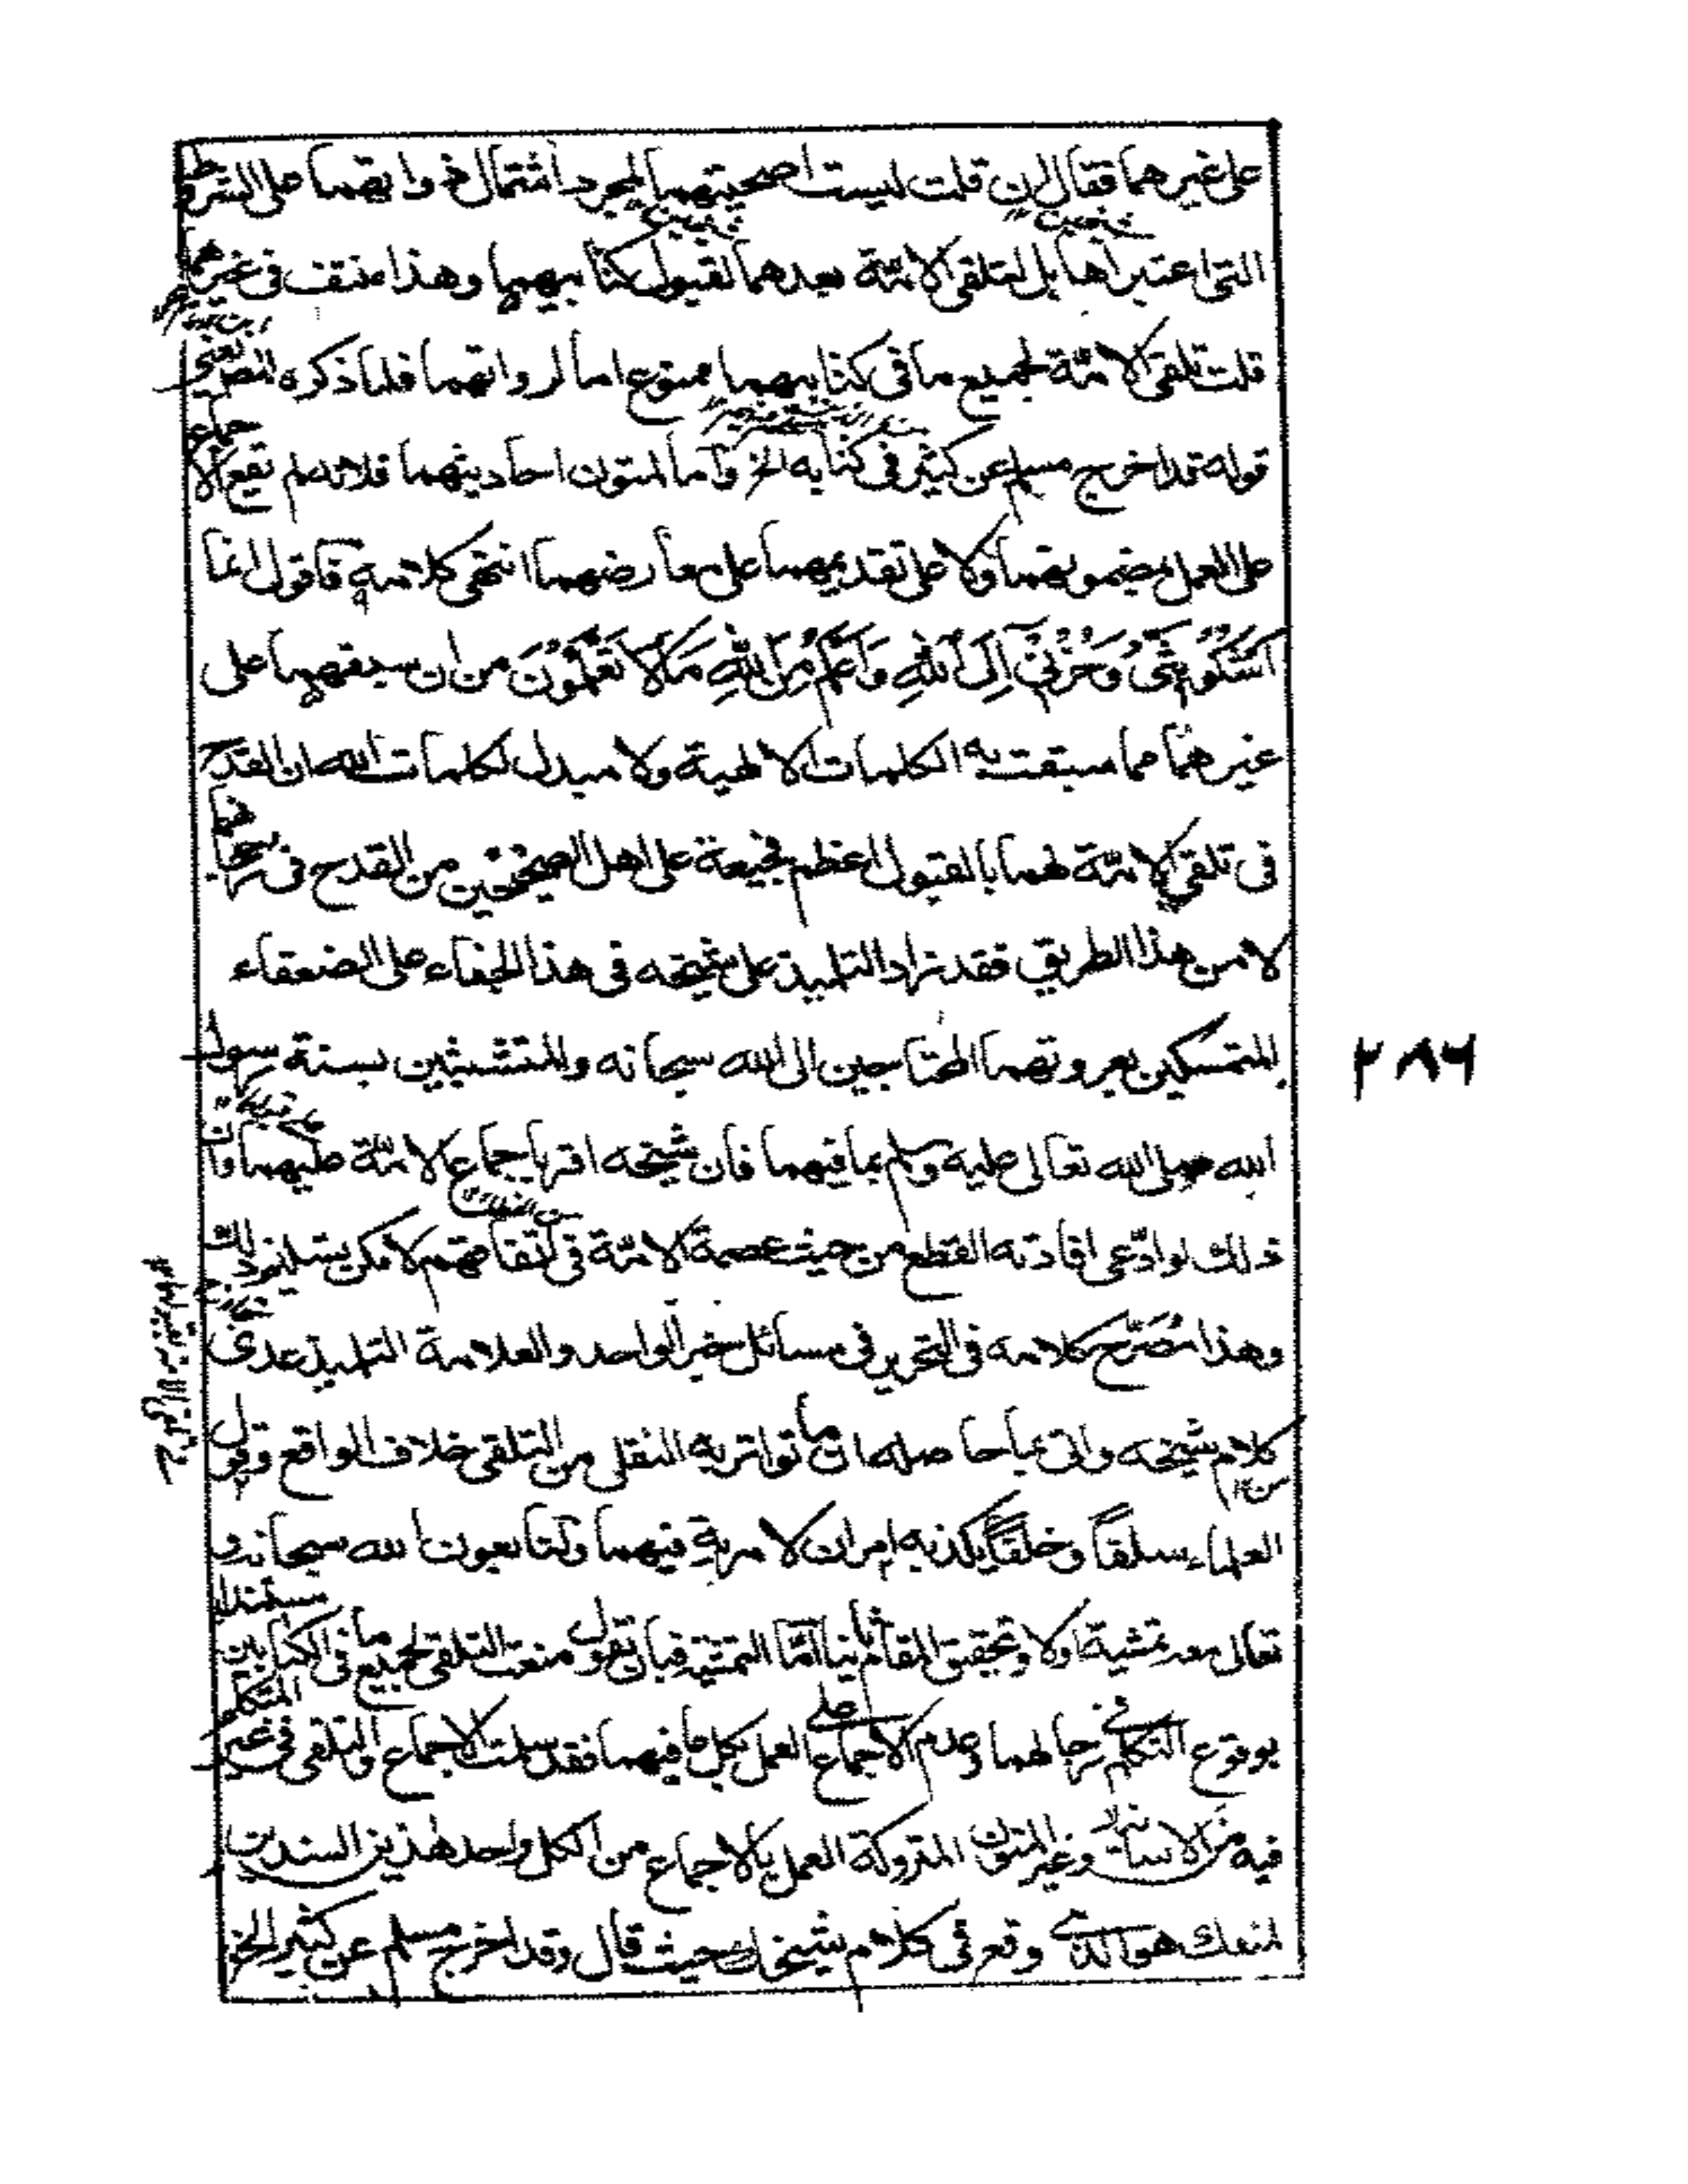 على غيرهما فقال ان قلت ليست اصحيتهما لمجرد اشتمال رواتهما على الشروط
التى اعتبراها بل لتلقى الامّة بعدهما لقبول كتابيهما وهذا منتف فى غيرهما
قلت تلقى الامّة لجميع ما فى كتابيهما ممنوع اما لرواتهما فلما ذكره المص يعنى
قوله قد اخرج مسلم عن كثير فى كتابه الخ وأما المتون احاديثهما فلانه لم يقع الاجماع
على العمل بمضمونهما ولا على تقديمهما على معارضهما انتهى كلامه فاقول انما
اَشْكُوْ بَثِّىْ وَحُزْنِىْ اِلَى اللهِ وَاَعْلَمُ مِنَ اللهِ مَا لَا تَعْلَمُوْنَ من ان سبقهما على
غيرهما مما سبقت به الكلمات الالهية ولا مبدل لكلمات الله ان القدح
فى تلقى الامّة لهما بالقبول اعظم فجيعة على اهل الصحيحين من القدح فى رجالهما
لا من هذا الطريق فقد زاد التلميذ على شيخه فى هذا الجفاء على الضعفاء
المتمسكين بعروتهما المحتاجين الى الله سبحانه والمتشبثين بسنة رسول
الله صلى الله تعالى عليه وسلم بما فيهما فان شيخه اقر باجماع الامّة عليهما وان
ذلك لو ادّعى افادته القطع من حيث عصمة الامّة فى اتفاقهم لامكن تسليم ذلك
وهذا مُصَرَّح كلامه فى التحرير فى مسائل خبر الواحد والعلامة التلميذ عدى
كلام شيخه واتى بما حاصله ان ما تواتر به النقل من التلقى خلاف الواقع وقول
العلماء سلفاً وخلفاً يكذبه امران لا مرية فيهما ولنا بعون الله سبحانه و
تعالى معه تمشية اولا وتحقيق المقام ثانيا امّا التمشية فبان نقول منعت التلقى لجميع ما فى الكتابين مستندا
بوقوع التكلم فى رجالهما وعدم الاجماع على العمل بكل ما فيهما فقد سلمت الاجماع والتلقى فى غير المتكلم
فيه من الاسانيد وغير المتون المتروكة العمل بالاجماع من الكل واحد هذين السندين
لمنعك هو الذى وقع فى كلام شيخك حيث قال وقد اخرج مسلم عن كثير الخ
٢٨٦